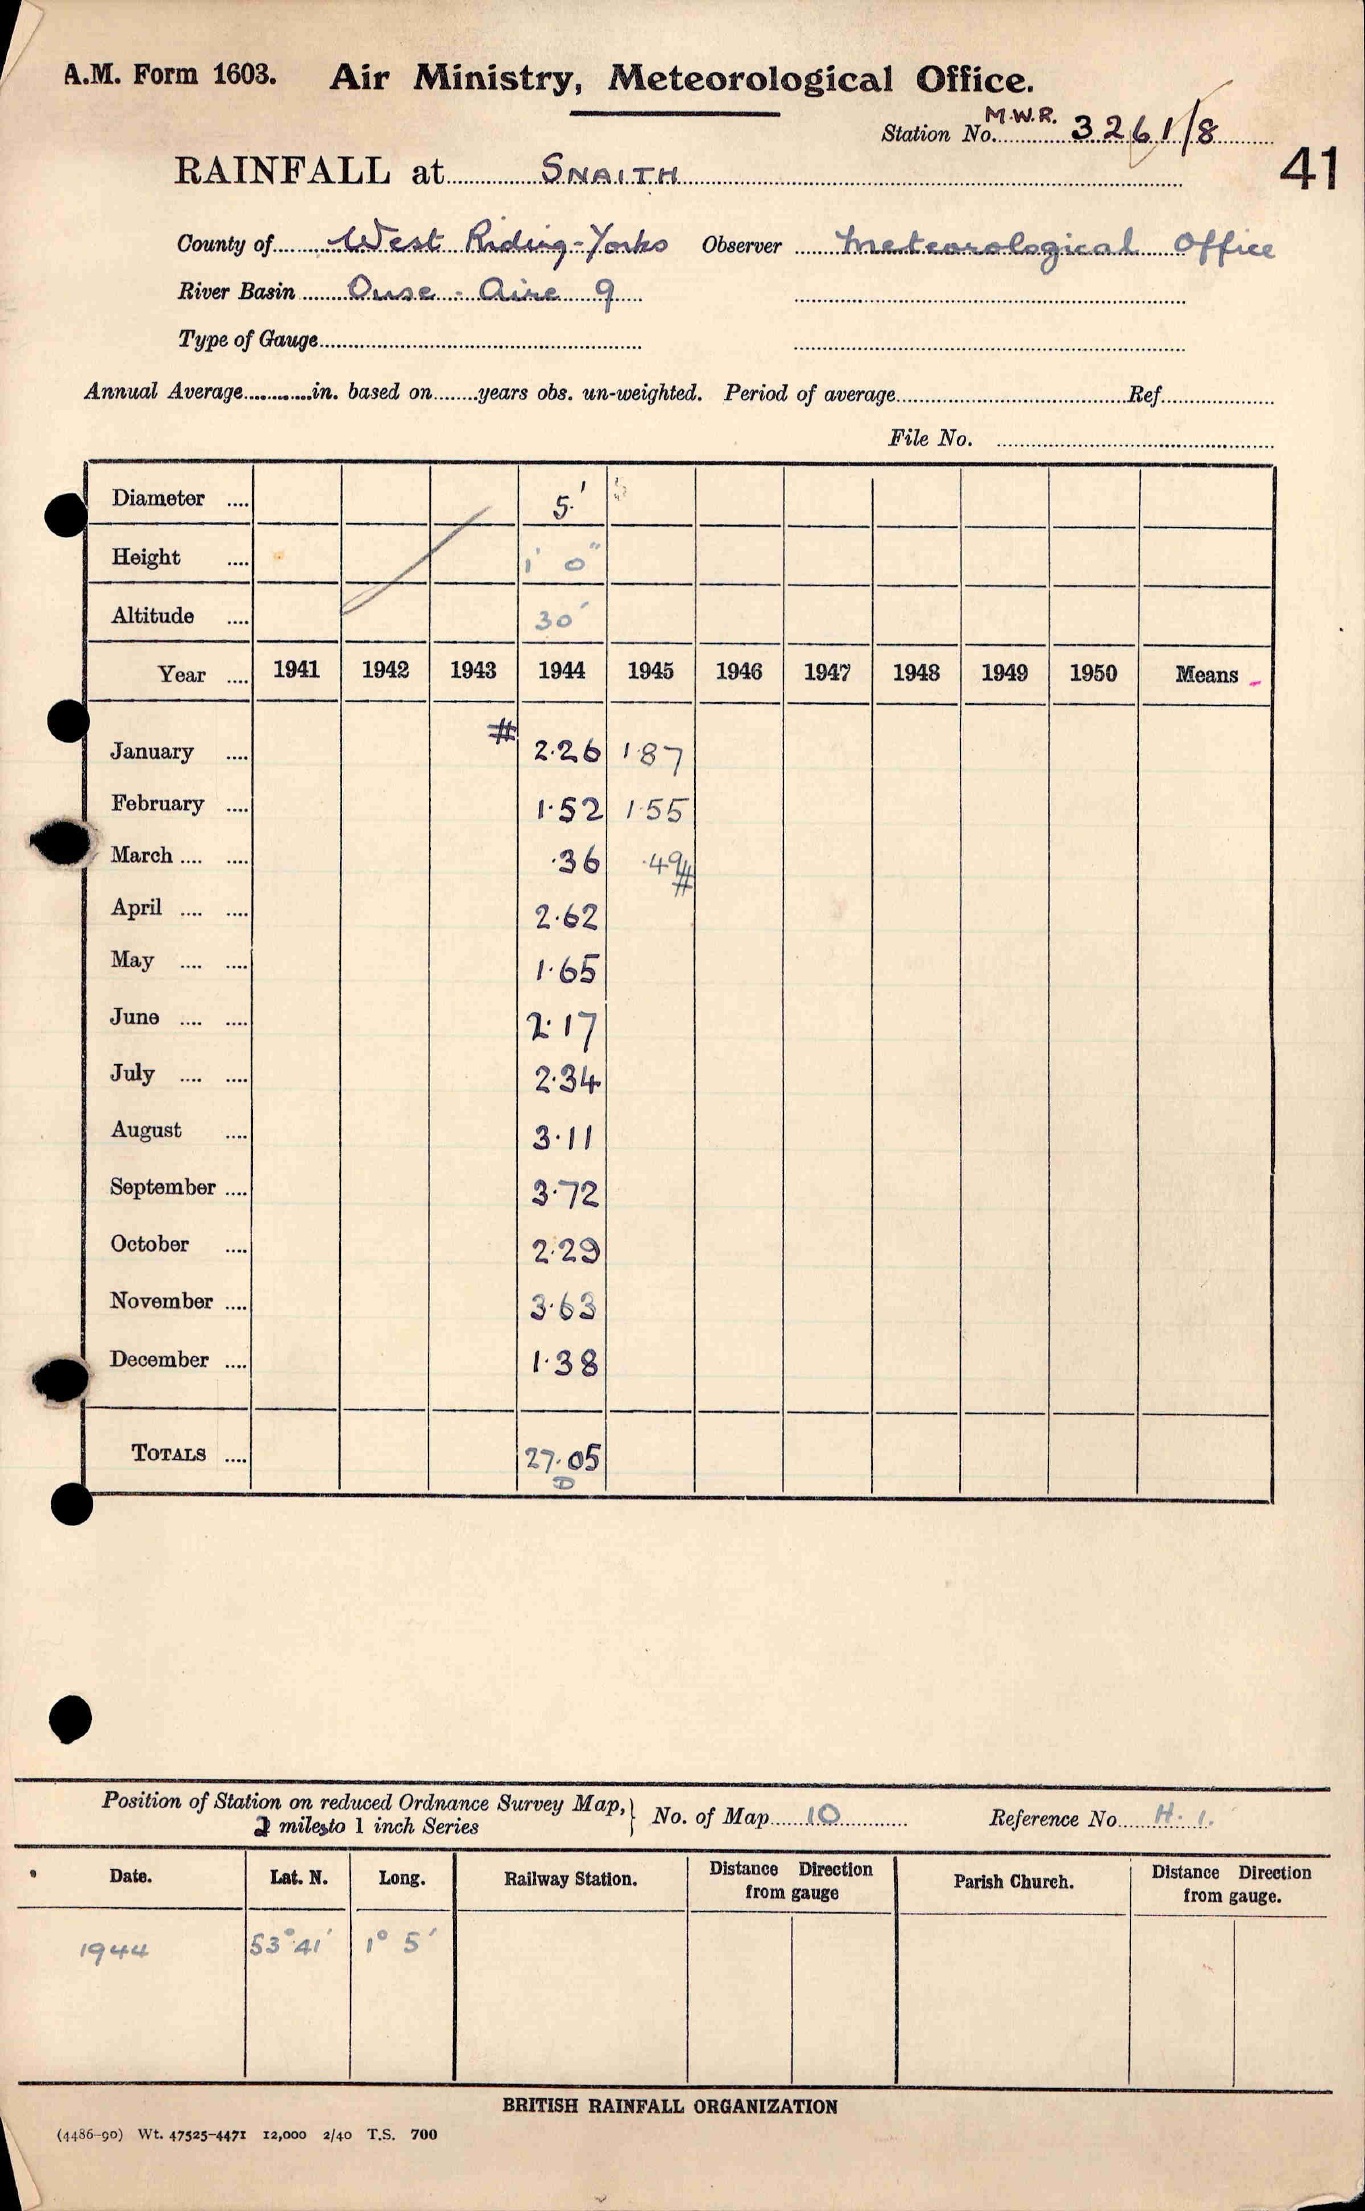 A.M. Form 1603. Air Ministry, Meteorological Office.
Station No. M.W.R. 3261/8
41
RAINFALL at SNAITH
County of West Riding - Yorks Observer Meteorological Office
River Basin Ouse - Aire 9
Type of Gauge
Annual Average in. based on years obs. un-weighted. Period of average Ref.
File No.
Diameter .... 5'
Height .... 1' 0"
Altitude .... 30'
Year .... 1941 1942 1943 1944 1945 1946 1947 1948 1949 1950 Means
January .... # 2.26 1.87
February .... 1.52 1.55
March .... .... .36 .49 #
April .... .... 2.62
May .... .... 1.65
June .... .... 2.17
July .... .... 2.34
August .... 3.11
September .... 3.72
October .... 2.29
November .... 3.63
December .... 1.38
TOTALS .... 27.05
D
Position of Station on reduced Ordnance Survey Map, } No. of Map 10 Reference No. H. 1.
2 miles to 1 inch Series
Date. Lat. N. Long. Railway Station. Distance Direction from gauge Parish Church. Distance Direction from gauge.
1944 53° 41' 1° 5'
BRITISH RAINFALL ORGANIZATION
(4486-90) Wt. 47525-4471 12,000 2/40 T.S. 700